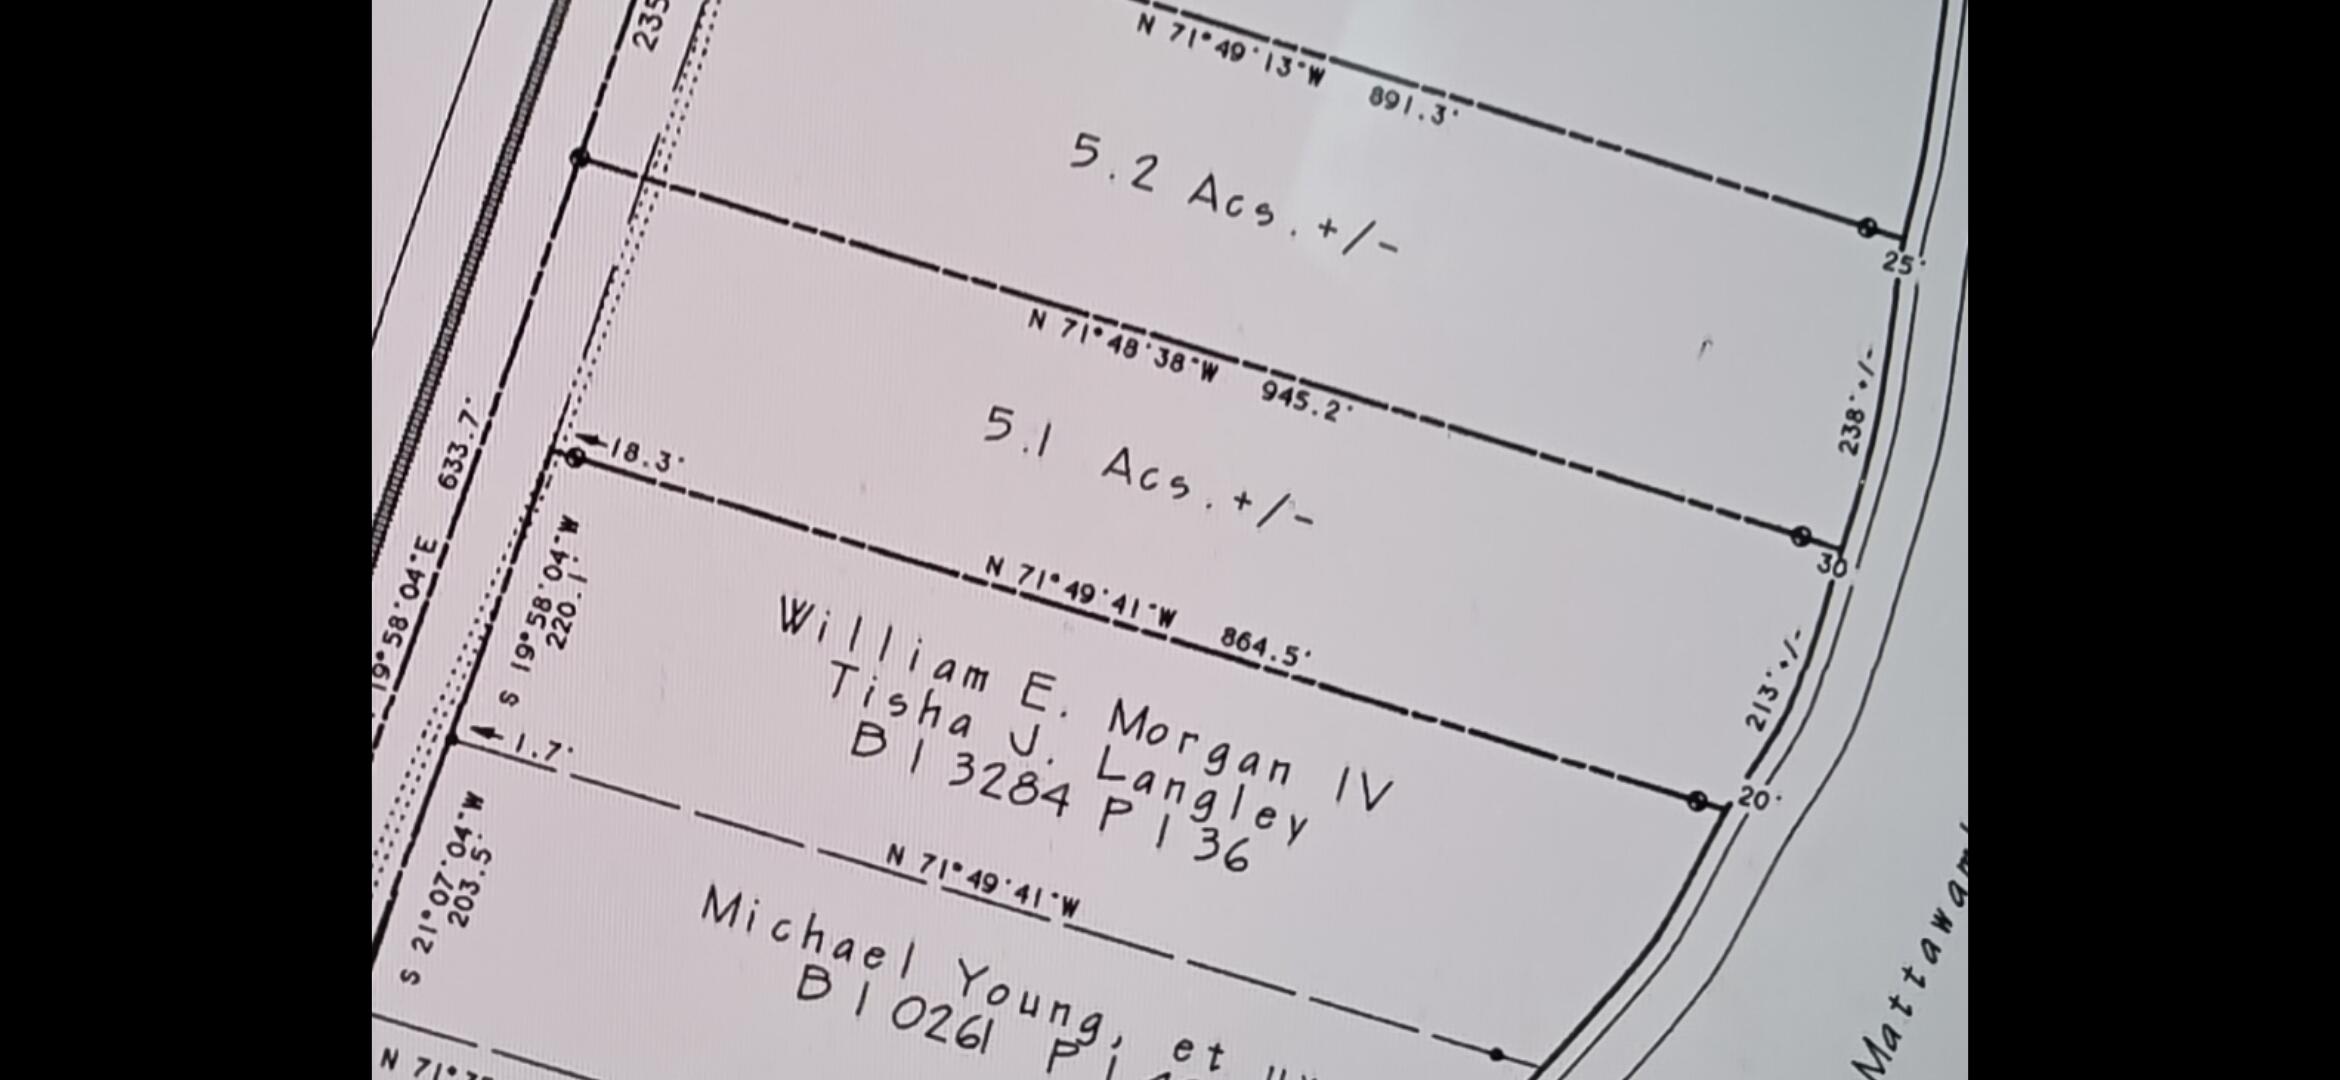 235
N 71°49'13"W 891.3'
5.2 Acs. +/-
25'
N 71°48'38"W 945.2'
238'+/-
633.7'
18.3'
5.1 Acs. +/-
30
19°58'04"E
S 19°58'04"W
220.1'
N 71°49'41"W 864.5'
213'+/-
William E. Morgan IV
Tisha J. Langley
B13284 P136
20'
1.7'
N 71°49'41"W
S 21°07'04"W
203.5'
Michael Young, et
B10261
N 71°